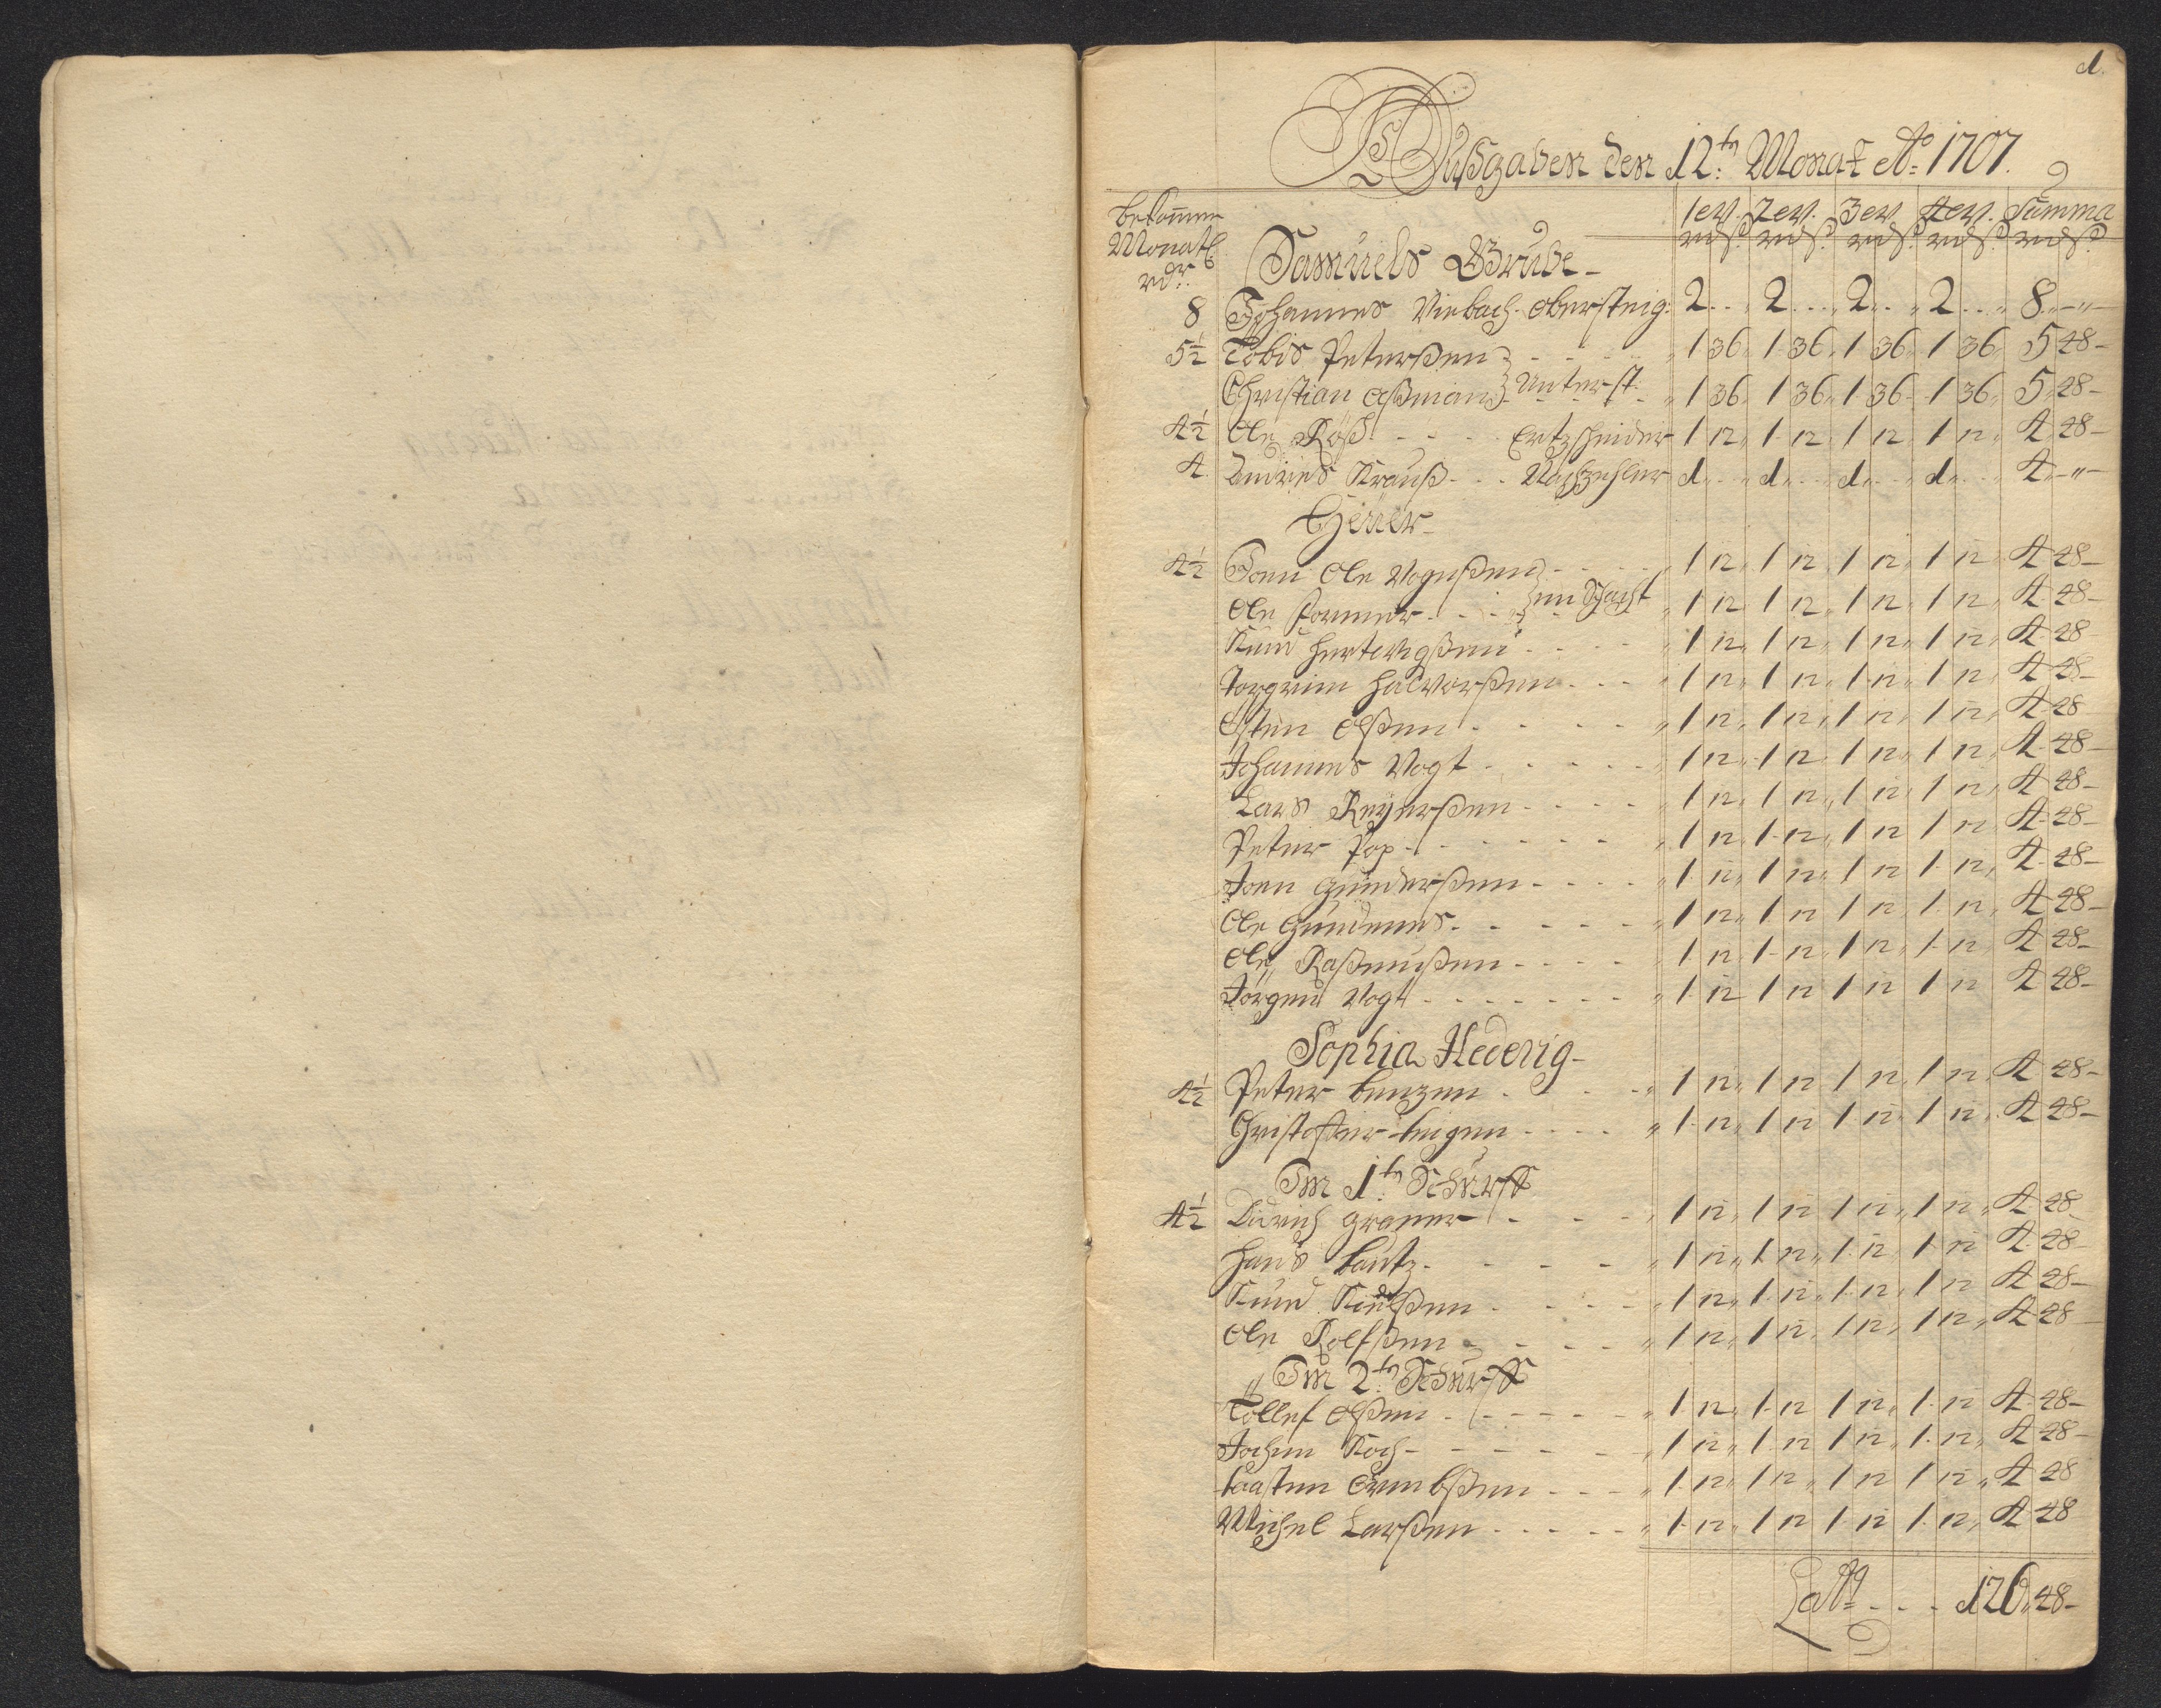 1.
Außgaben den 12tn Monat Ao 1707.
bekommen Monatl. rdr.
1 ew. 2 ew. 3 ew. 4 ew. Summa
rd ß. rd ß. rd ß. rd ß. rd ß.
Samuels Grube
8 Johannes Viebach. Obersteig: 2 2 2 2 8 - " -
5½ Tobis Peterßen 1 36 1 36 1 36 1 36 5 48 -
Christian Aßman Unterst. 1 36 1 36 1 36 1 36 5 48 -
4½ Ole Röß Ertzscheider 1 12 1 12 1 12 1 12 4 48 -
4. Andries Krauß Nachzehler 1 1 1 1 4 - " -
Heüer
4½ Joen Ole Vogenßen 1 12 1 12 1 12 1 12 4 48 -
Ole Pommer im Schacht 1 12 1 12 1 12 1 12 4 48 -
Knud Hertewigßen 1 12 1 12 1 12 1 12 4 48
Torgrim Halvorßen 1 12 1 12 1 12 1 12 4 48 -
Östen Olßen 1 12 1 12 1 12 1 12 4 48
Johannes Vogt 1 12 1 12 1 12 1 12 4 48 -
Lars Reyerßen 1 12 1 12 1 12 1 12 4 48 -
Peter Pop 1 12 1 12 1 12 1 12 4 48 -
Joen Gunderßen 1 12 1 12 1 12 1 12 4 48 -
Ole Gundenes 1 12 1 12 1 12 1 12 4 48 -
Ole Raßmußen 1 12 1 12 1 12 1 12 4 48 -
Jörgen Vogt 1 12 1 12 1 12 1 12 4 48 -
Sophia Hedevig
4½ Peter Benzen 1 12 1 12 1 12 1 12 4 48 -
Christoffer 1 12 1 12 1 12 1 12 4 48 -
Im 1tn Schurff
4½ Didrich Gramer 1 12 1 12 1 12 1 12 4 48
Hans Bautz 1 12 1 12 1 12 1 12 4 48 -
Knud 1 12 1 12 1 12 1 12 4 48 -
Ole Rolfßen 1 12 1 12 1 12 1 12 4 48
Im 2tn Schurff
Tollef Olßen 1 12 1 12 1 12 1 12 4 48 -
Jochim Koch 1 12 1 12 1 12 1 12 4 48 -
1 12 1 12 1 12 1 12 4 48
Michel Larßen 1 12 1 12 1 12 1 12 4 48
Latt 126 48 -